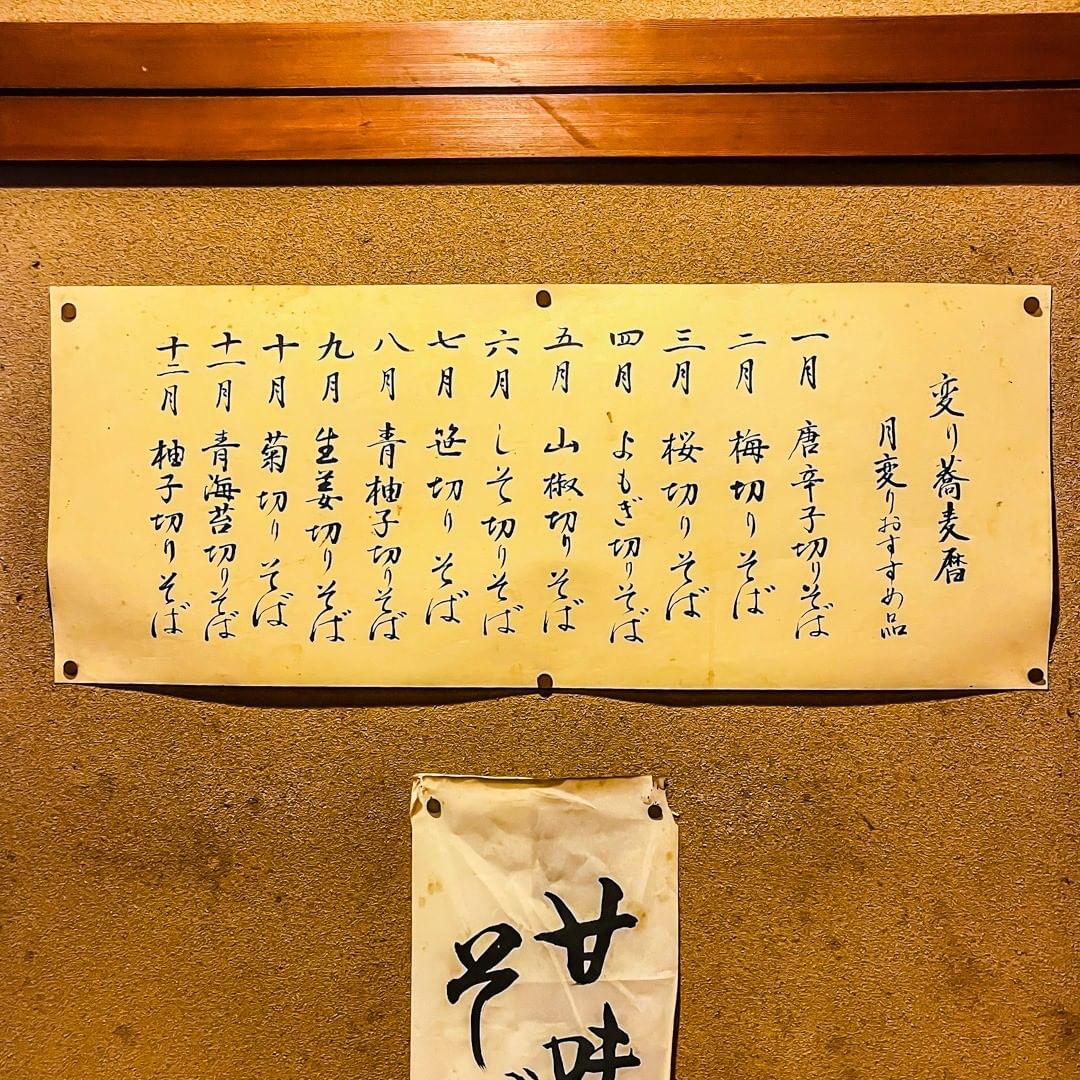 変り蕎麦暦
月変りおすすめ品
一月 唐辛子切りそば
二月 梅切りそば
三月 桜切りそば
四月 よもぎ切りそば
五月 山椒切りそば
六月 しそ切りそば
七月 笹切りそば
八月 青柚子切りそば
九月 生姜切りそば
十月 菊切りそば
十一月 青海苔切りそば
十二月 柚子切りそば
甘味
そ